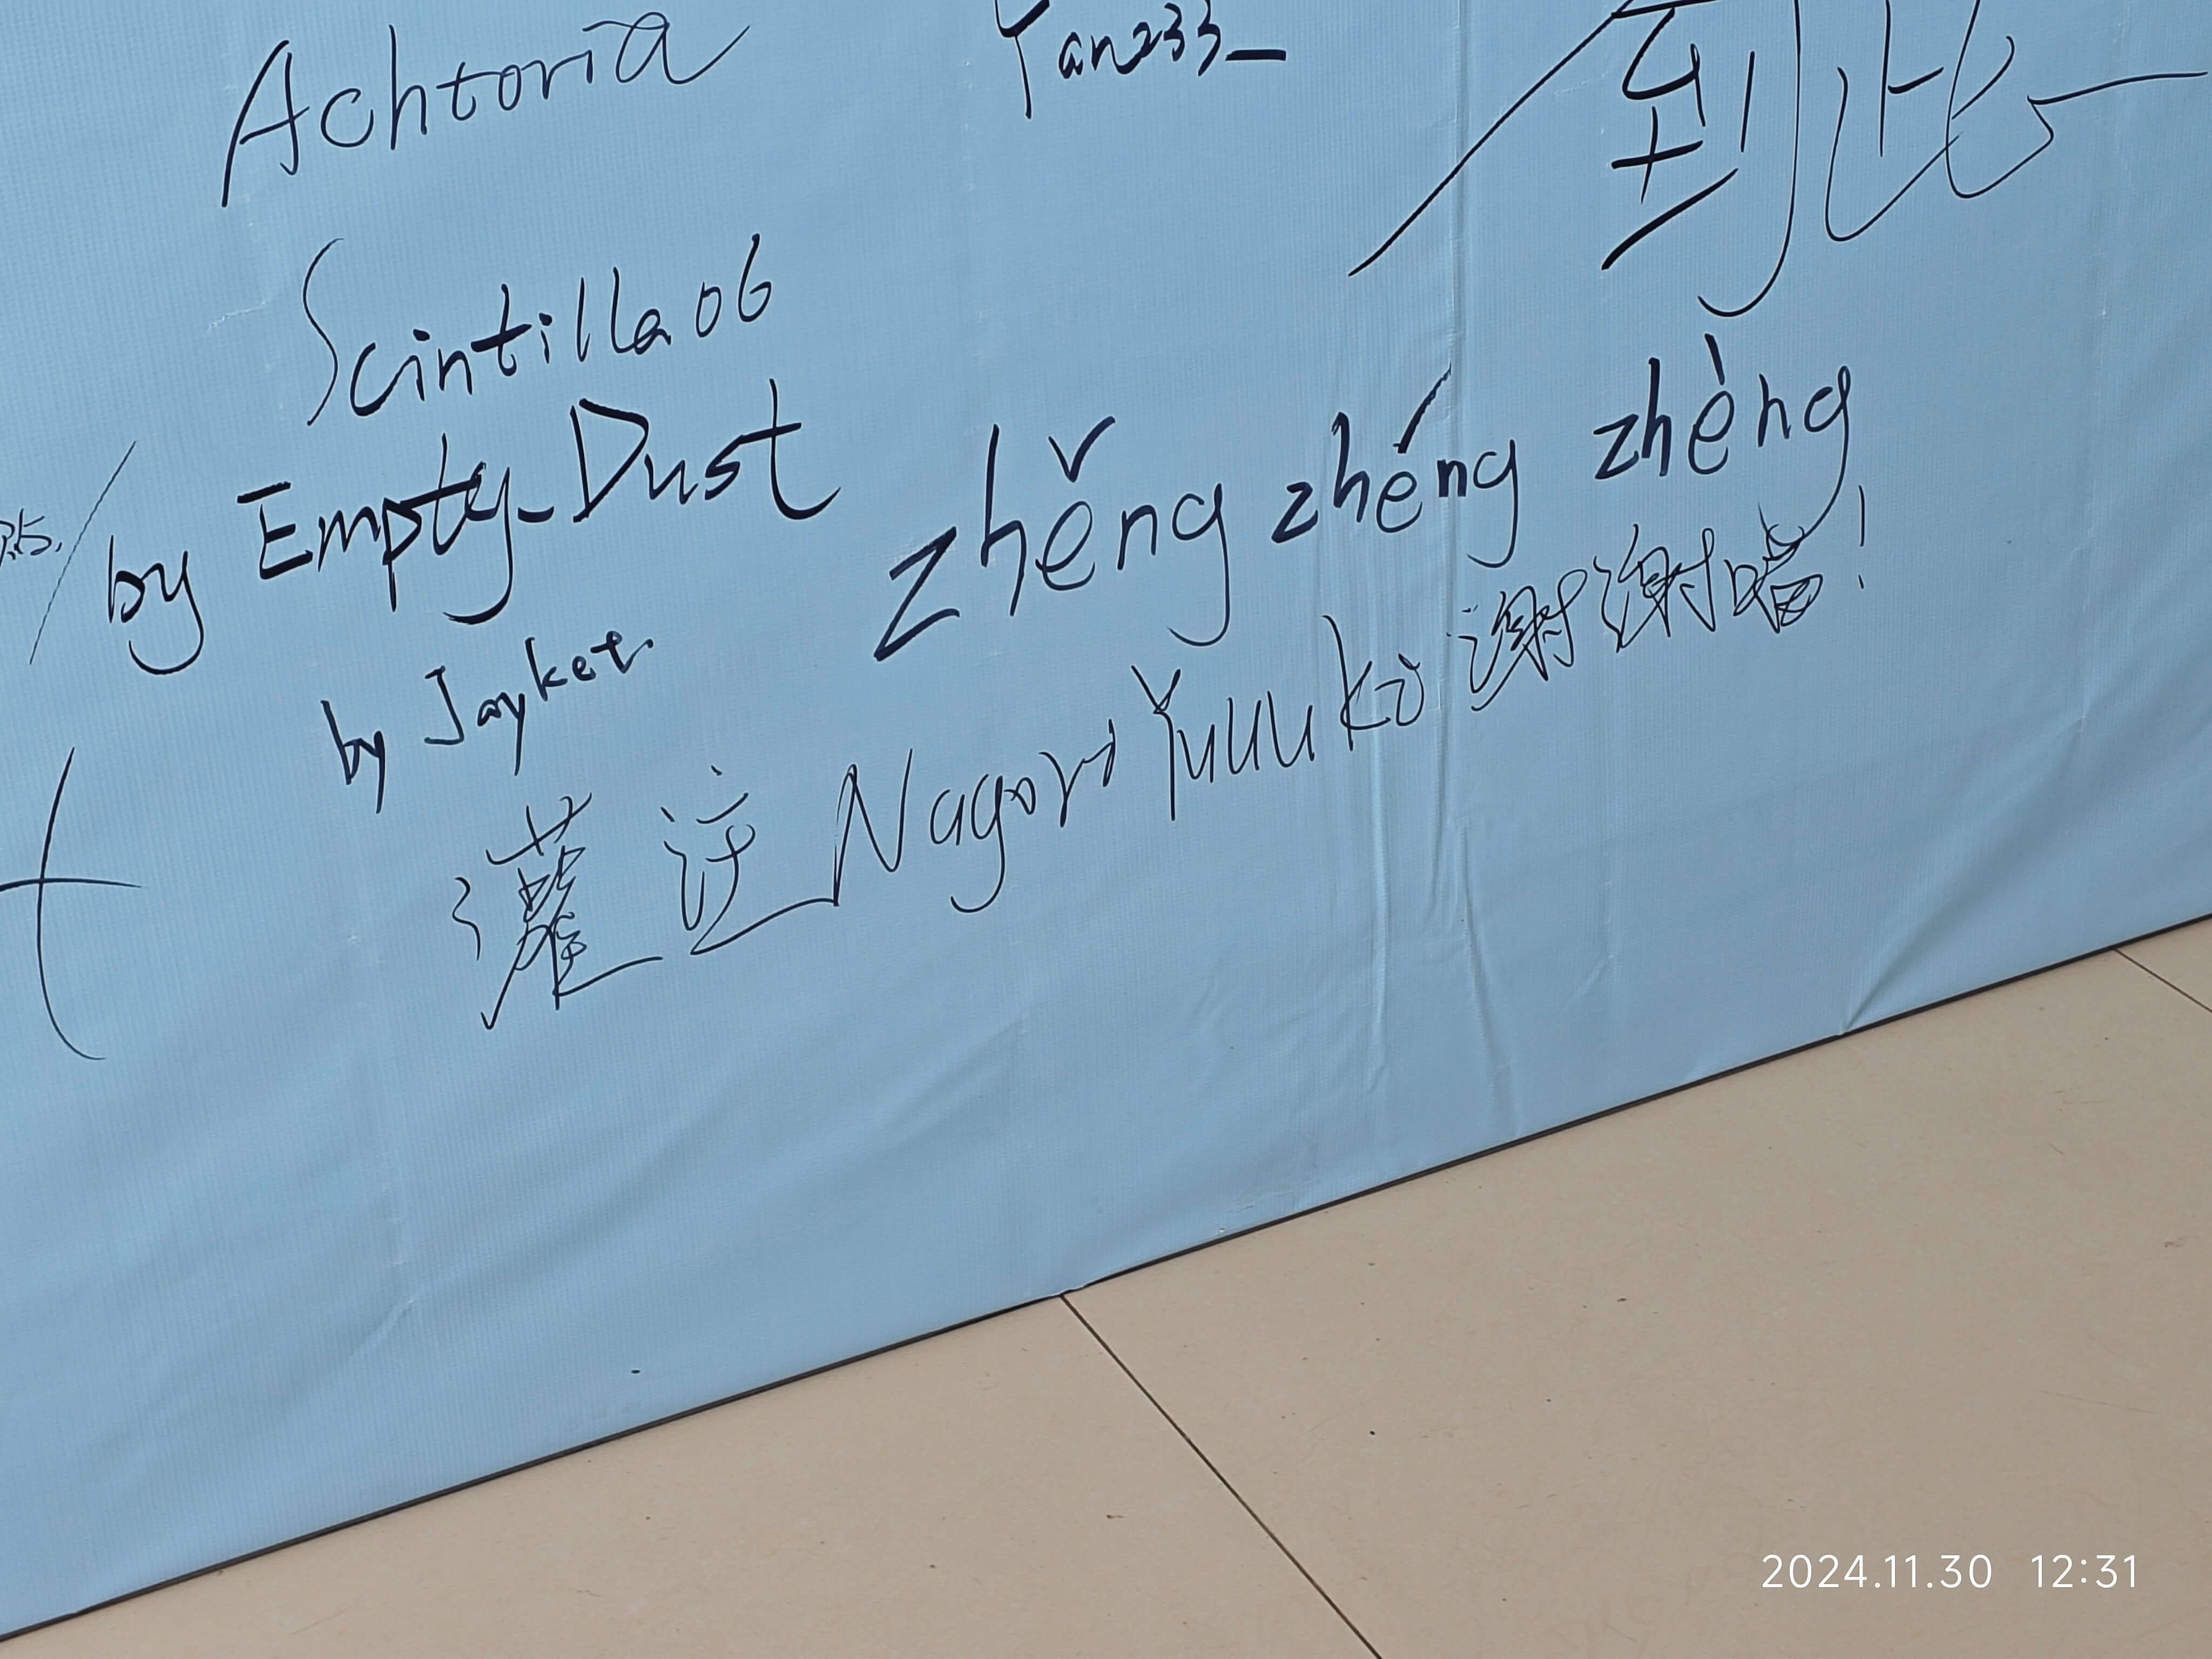 Achtoria
Yan233_
到此一
Scintilla06
by Empty_Dust
zhěng zhéng zhèng
by Jayket.
灌注 Nagori Yuuuko 谢谢喵!
2024.11.30 12:31